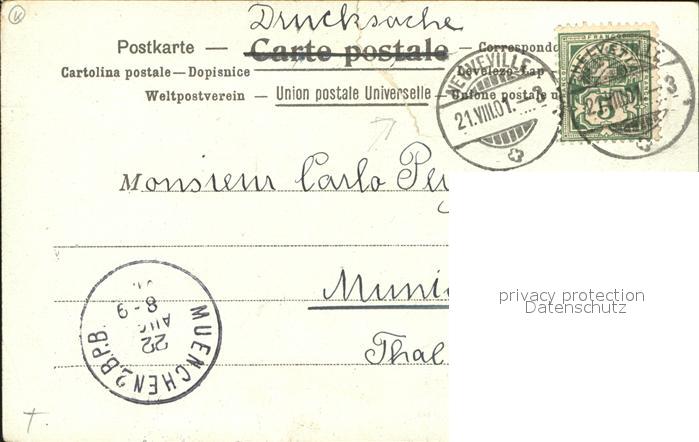 Drucksache
Postkarte — Carte postale — Correspondo
Cartolina postale — Dopisnice Levelező-Lap
Weltpostverein — Union postale Universelle — Unione postale u
NEUVEVILLE
21.VIII.01. - 3
HELVETIA
FRANCO
5
Monsieur Carlo
Thal
privacy protection
Datenschutz
MUENCHEN 2,B.P.B.
22
AUG
8-9